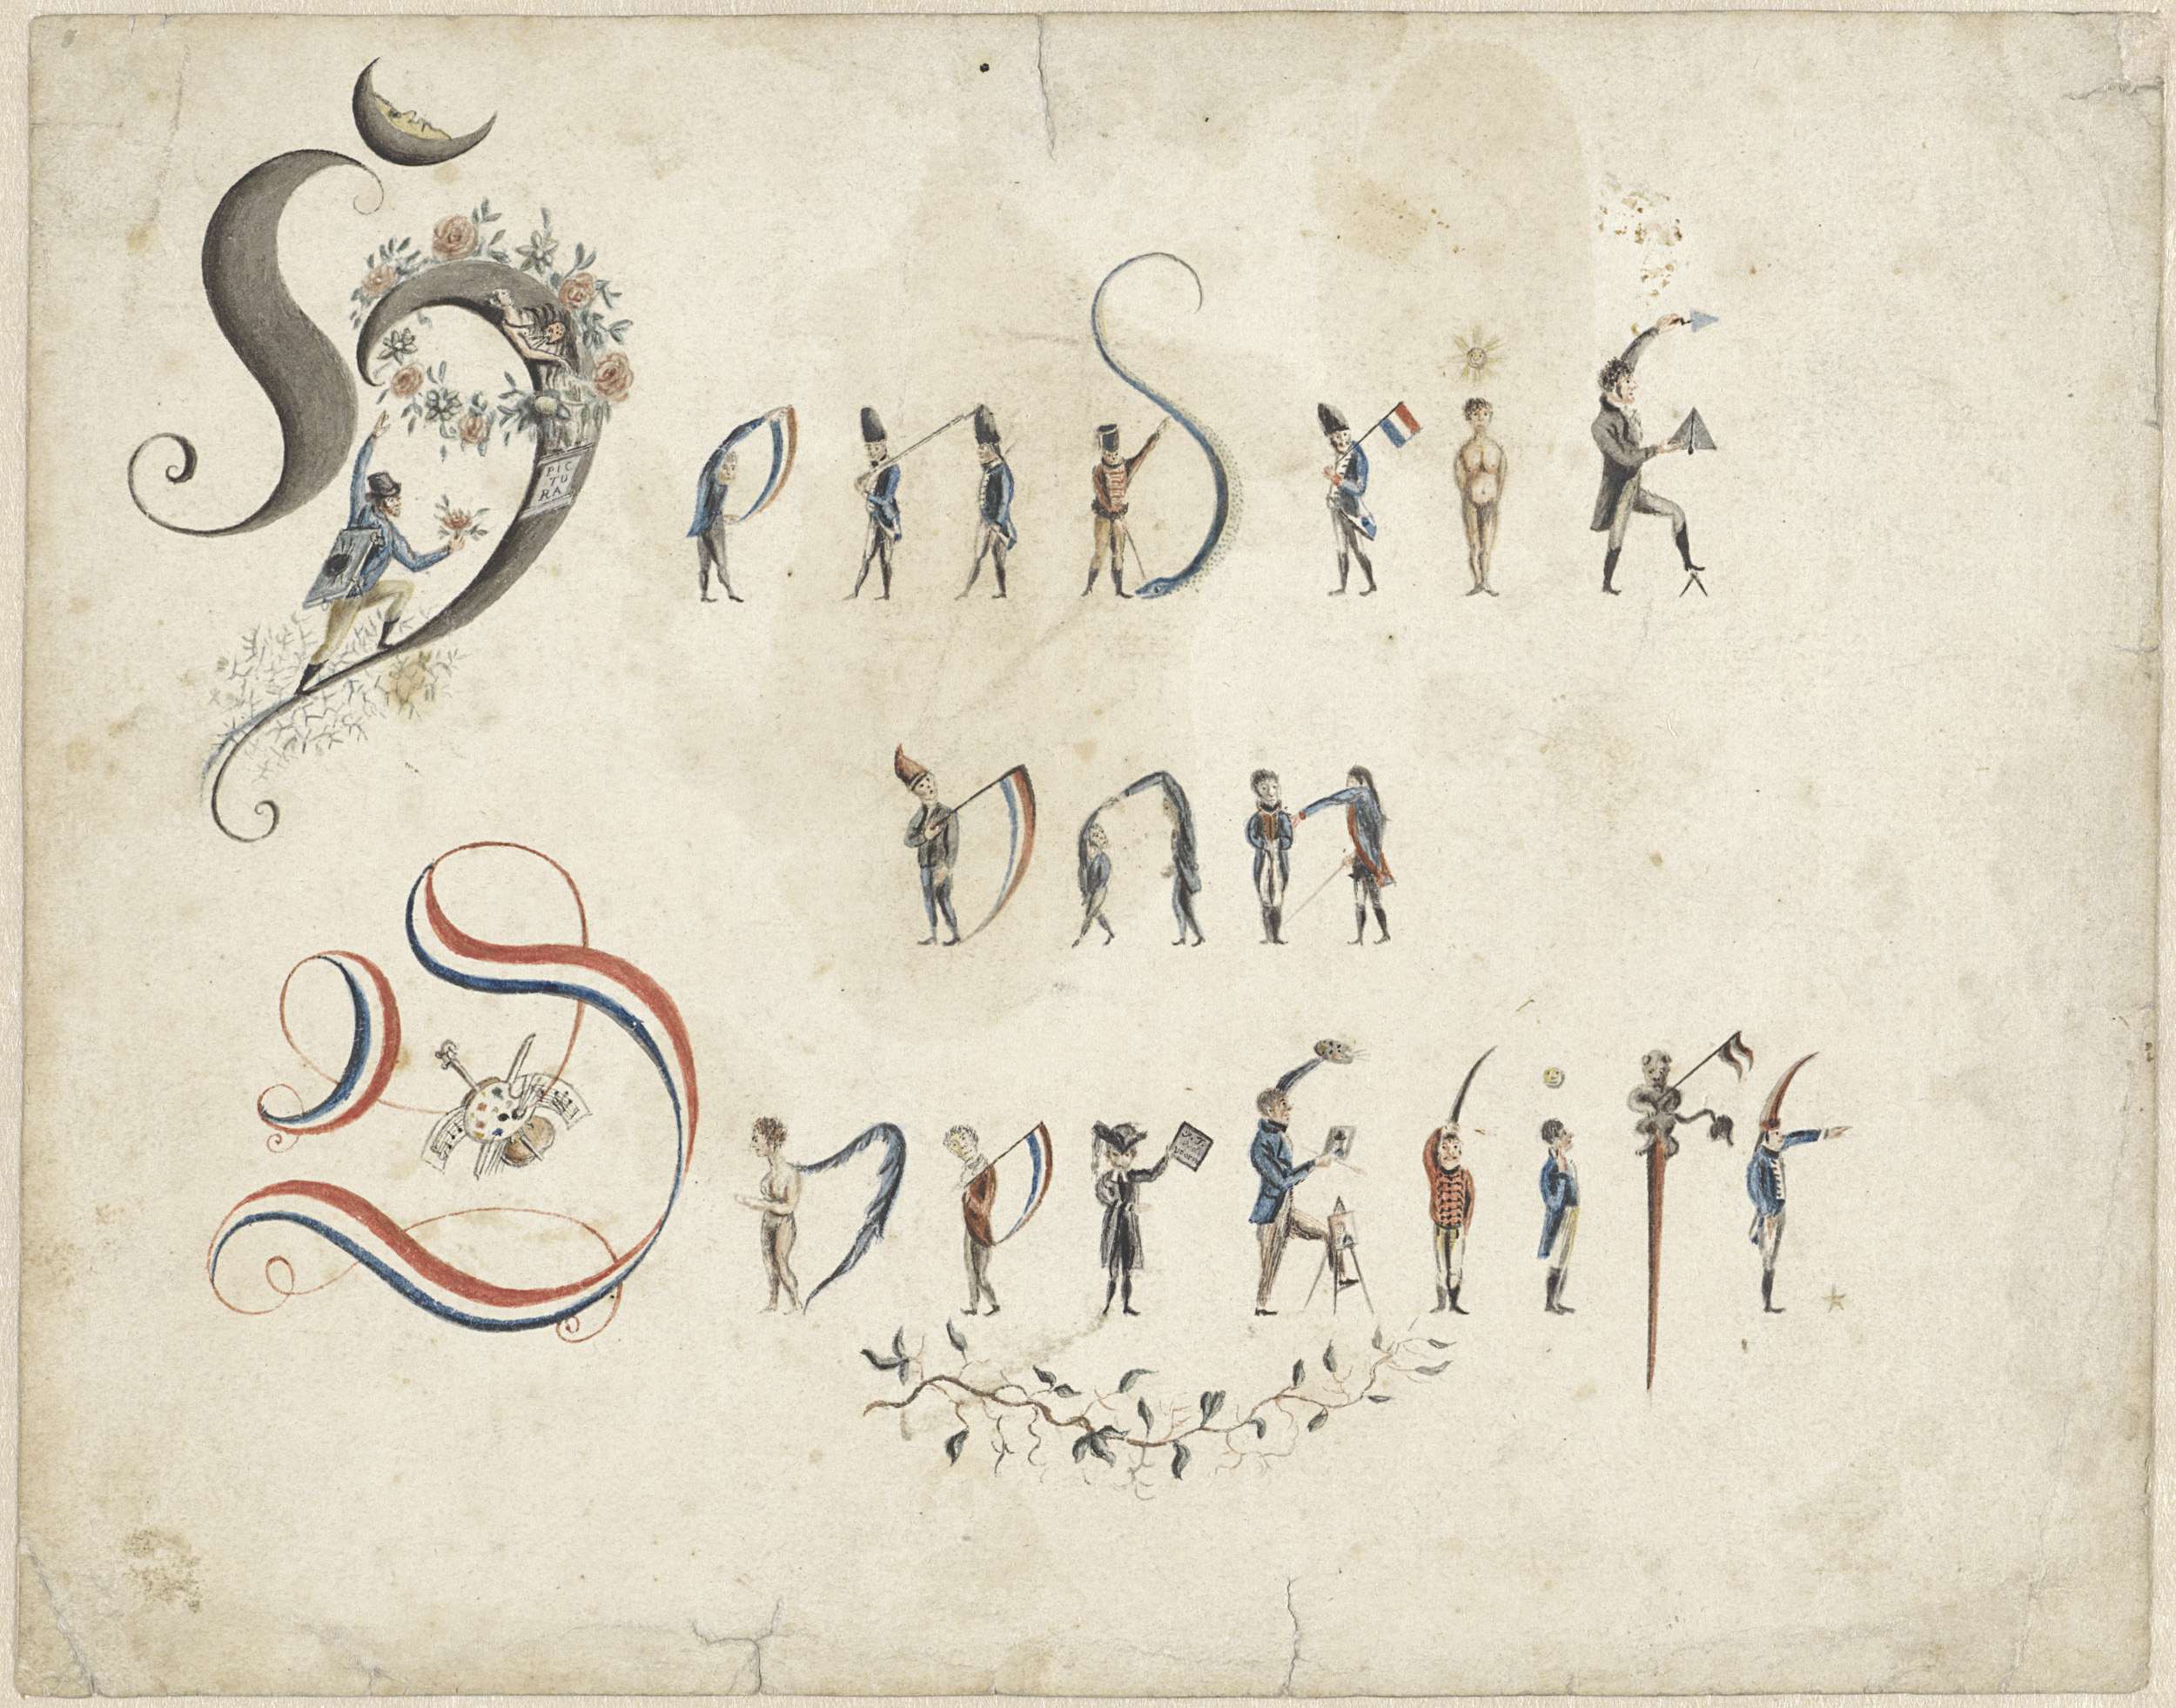 Hendrik
PIC
TU
RA
van
Overklift